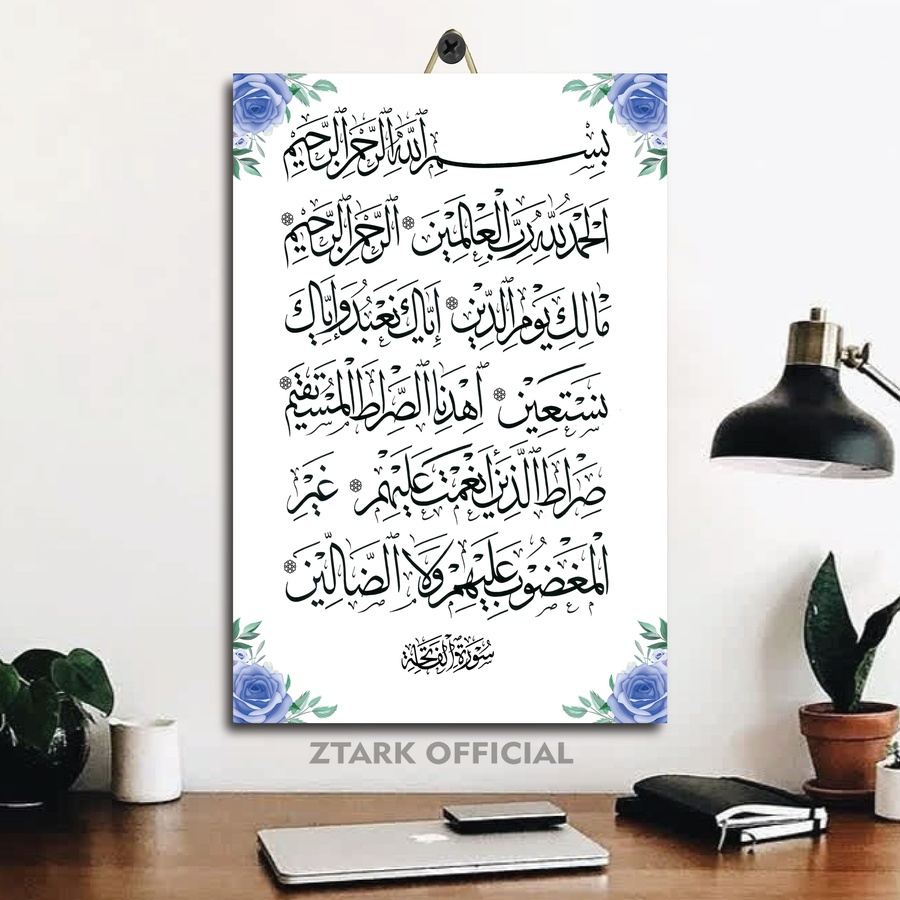 بِسْمِ اللَّهِ الرَّحْمَٰنِ الرَّحِيمِ
الْحَمْدُ لِلَّهِ رَبِّ الْعَالَمِينَ ۞ الرَّحْمَٰنِ الرَّحِيمِ ۞
مَالِكِ يَوْمِ الدِّينِ ۞ إِيَّاكَ نَعْبُدُ وَإِيَّاكَ
نَسْتَعِينُ ۞ اهْدِنَا الصِّرَاطَ الْمُسْتَقِيمَ ۞
صِرَاطَ الَّذِينَ أَنْعَمْتَ عَلَيْهِمْ ۞ غَيْرِ
الْمَغْضُوبِ عَلَيْهِمْ وَلَا الضَّالِّينَ ۞
سُورَةُ الْفَاتِحَةِ
ZTARK OFFICIAL